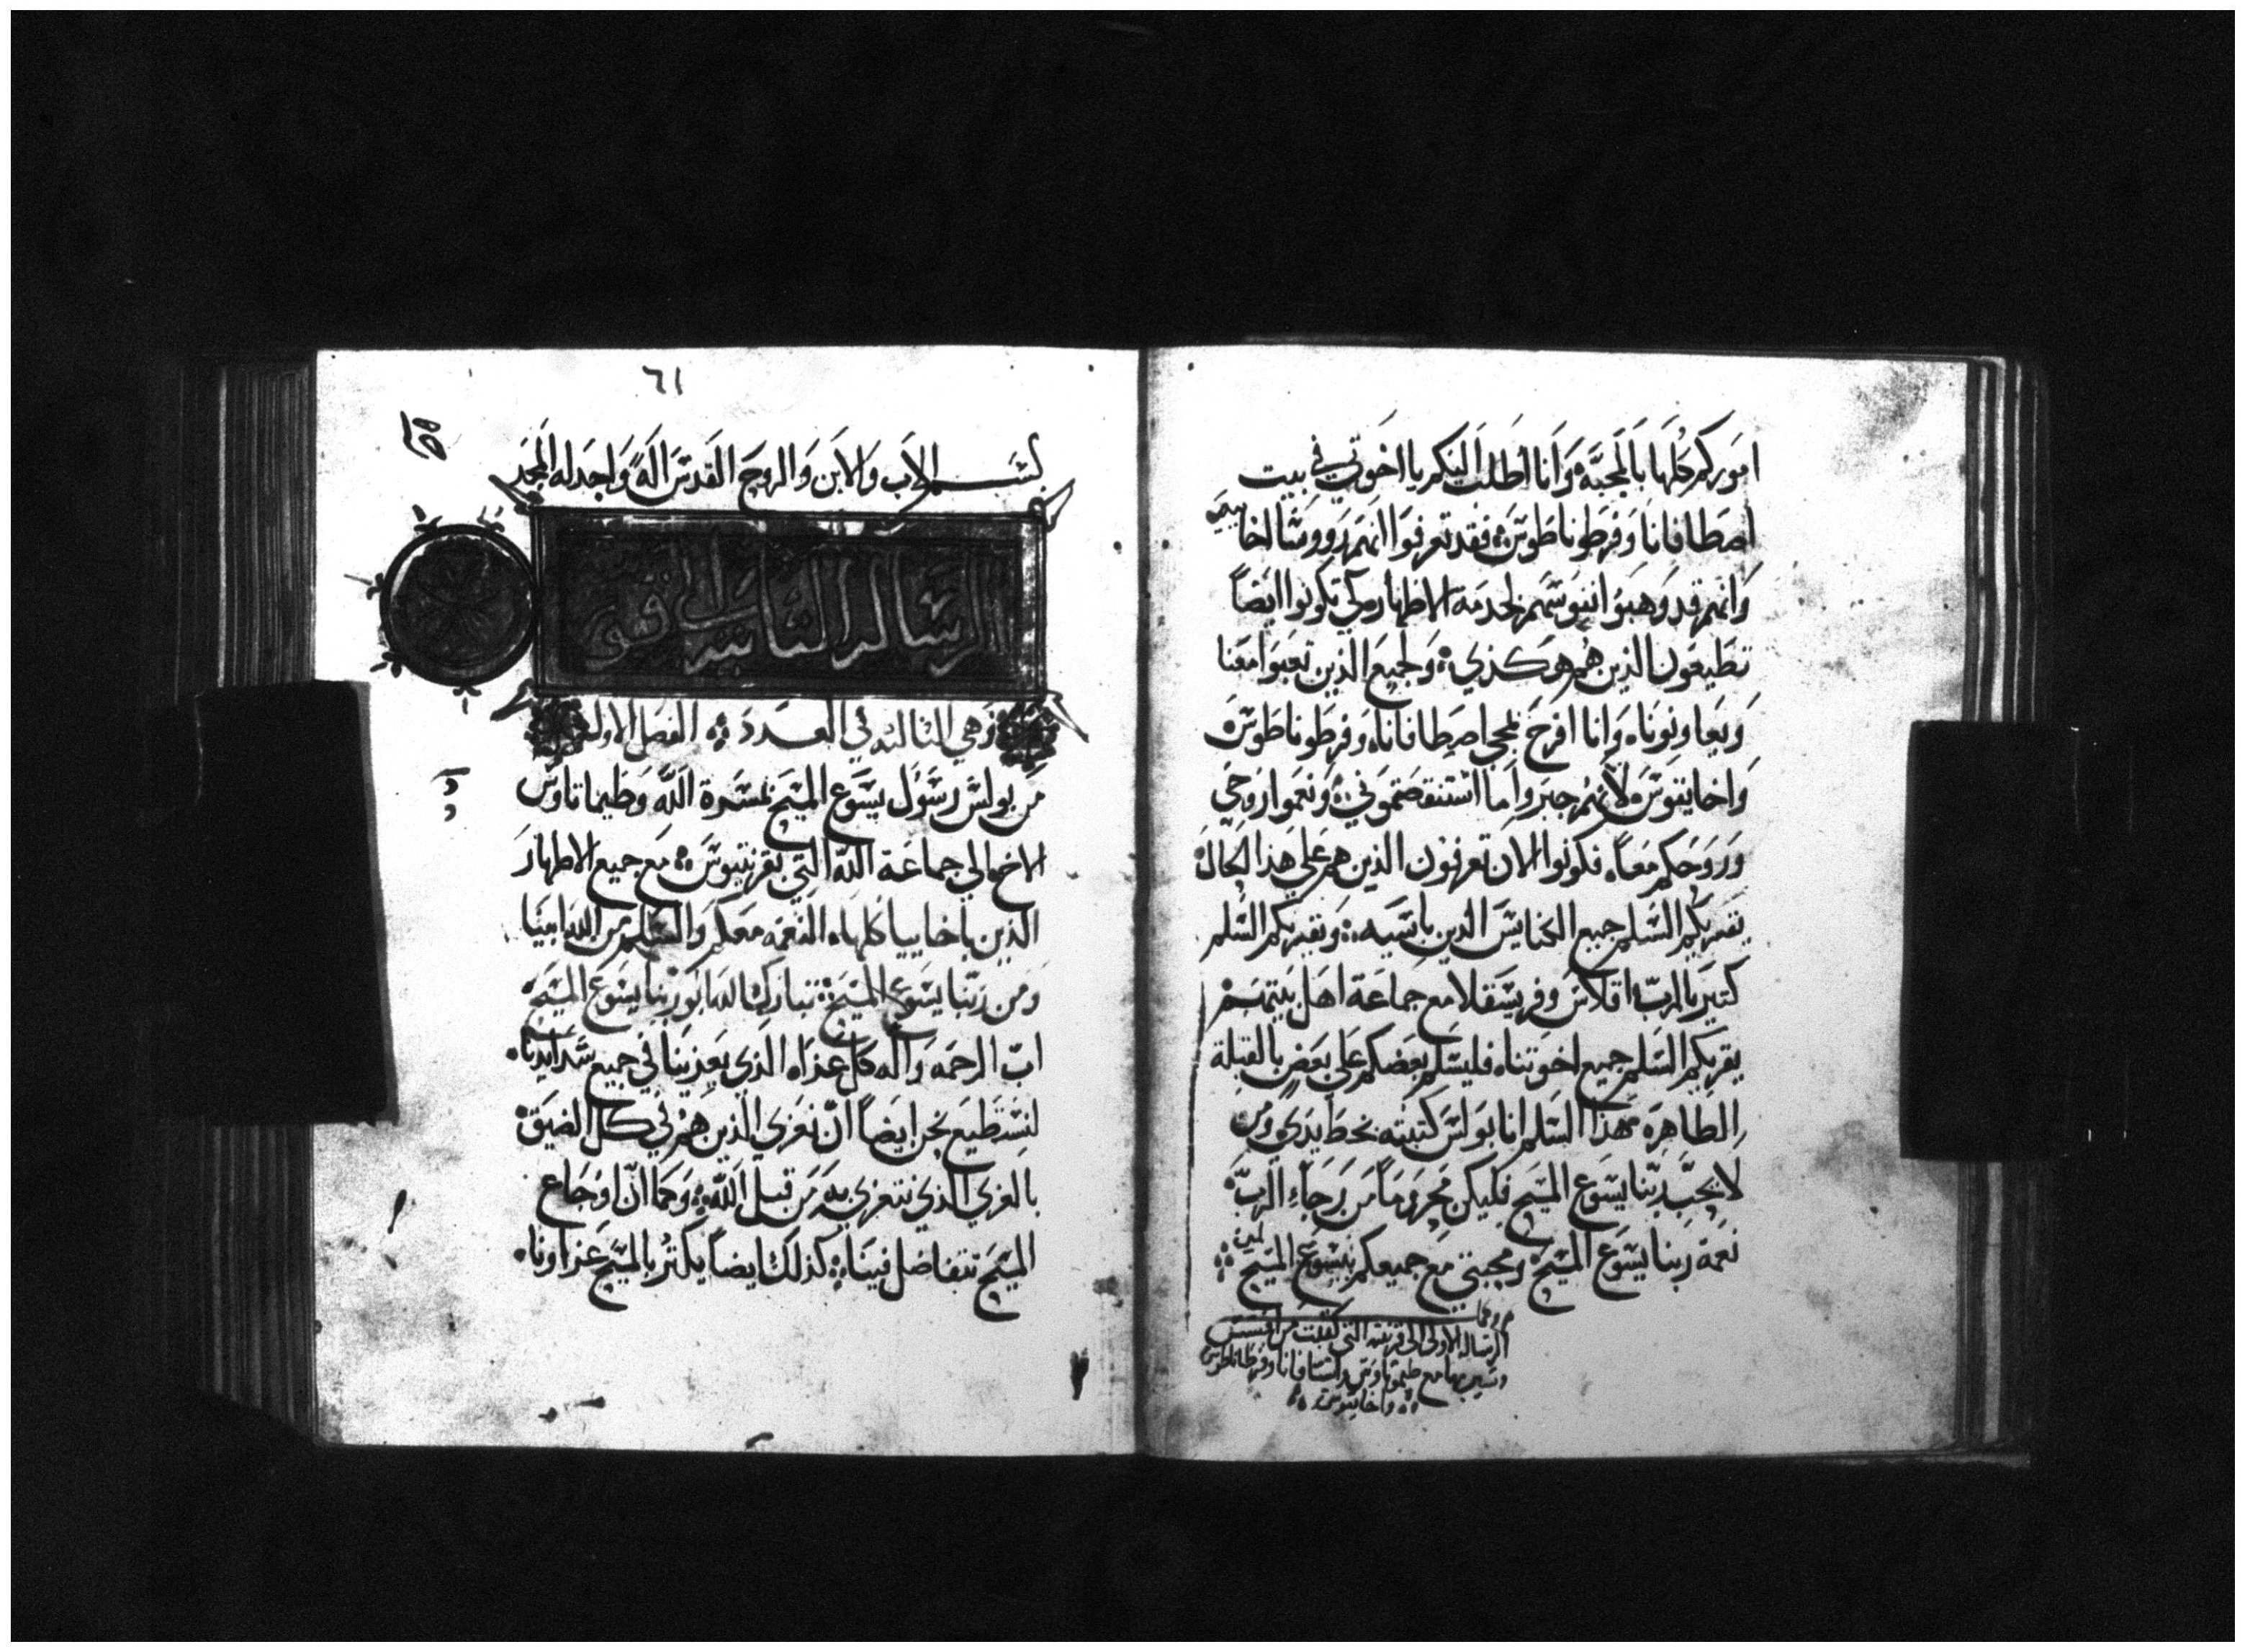 اموركم كلها بالمحبة وانا اطلب اليكم يا اخوتي في بيت
اصطافانا وفرطوناطوس فقد تعرفوا انهم رووسا اخاييه
وانهم قد وهبوا انفوسهم لخدمة الاطهار كي تكونوا ايضاً
تطيعون الذين هم هوكذي ولجميع الذين تعبوا معنا
ويعاونونا وانا افرح بمجي اصطافانا وفرطوناطوس
واخايقوس لانهم جبروا ما استنقصتموني ونعموا روحي
وروحكم معاً فكونوا الان تعرفون الذين هم علي هذا الحال
يقريكم السلم جميع الكنايس الذين باسيه ويقريكم السلم
كتير يا الرب اقلاس وفريسقلا مع جماعة اهل بيتهم
يقريكم السلم جميع اخوتنا فليسلم بعضكم علي بعض بالقبلة
الطاهره هذا السلم انا بولس كتبته بخط يدي ومن
لا يحب ربنا يسوع المسيح فليكن محروماً من رجاء الرب
نعمة ربنا يسوع المسيح ومحبتي مع جميعكم بيسوع المسيح امين
الرساله الاولي الي قرنتيه التي كتبت من افسس
وسير بها مع طيموتاوس واستافانا وفرطاناطوس
واخاييقوس
٦١
بسم الاب والابن والروح القدس اله واحد له المجد
الرساله التانيه الي قو
وهي التالته في العدد الفصل الاول
من بولس رسول يسوع المسيح بمسرة الله وطيماتاوس
الاخ الي جماعة الله التي بقرنتيوس مع جميع الاطهار
الذين باخاييا كلها النعمه معكم والسلم من الله ابينا
ومن ربنا يسوع المسيح تبارك الله ابو ربنا يسوع المسيح
اب الرحمه واله كل عزاه الذي يعزينا في جميع شدايدنا
لنستطيع نحن ايضاً ان نعزي الذين هم في كل الضيق
بالعزي الذي نتعزي به من قبل الله وكما ان اوجاع
المسيح تتفاضل فينا كذلك ايضاً يكتر بالمسيح عزاونا